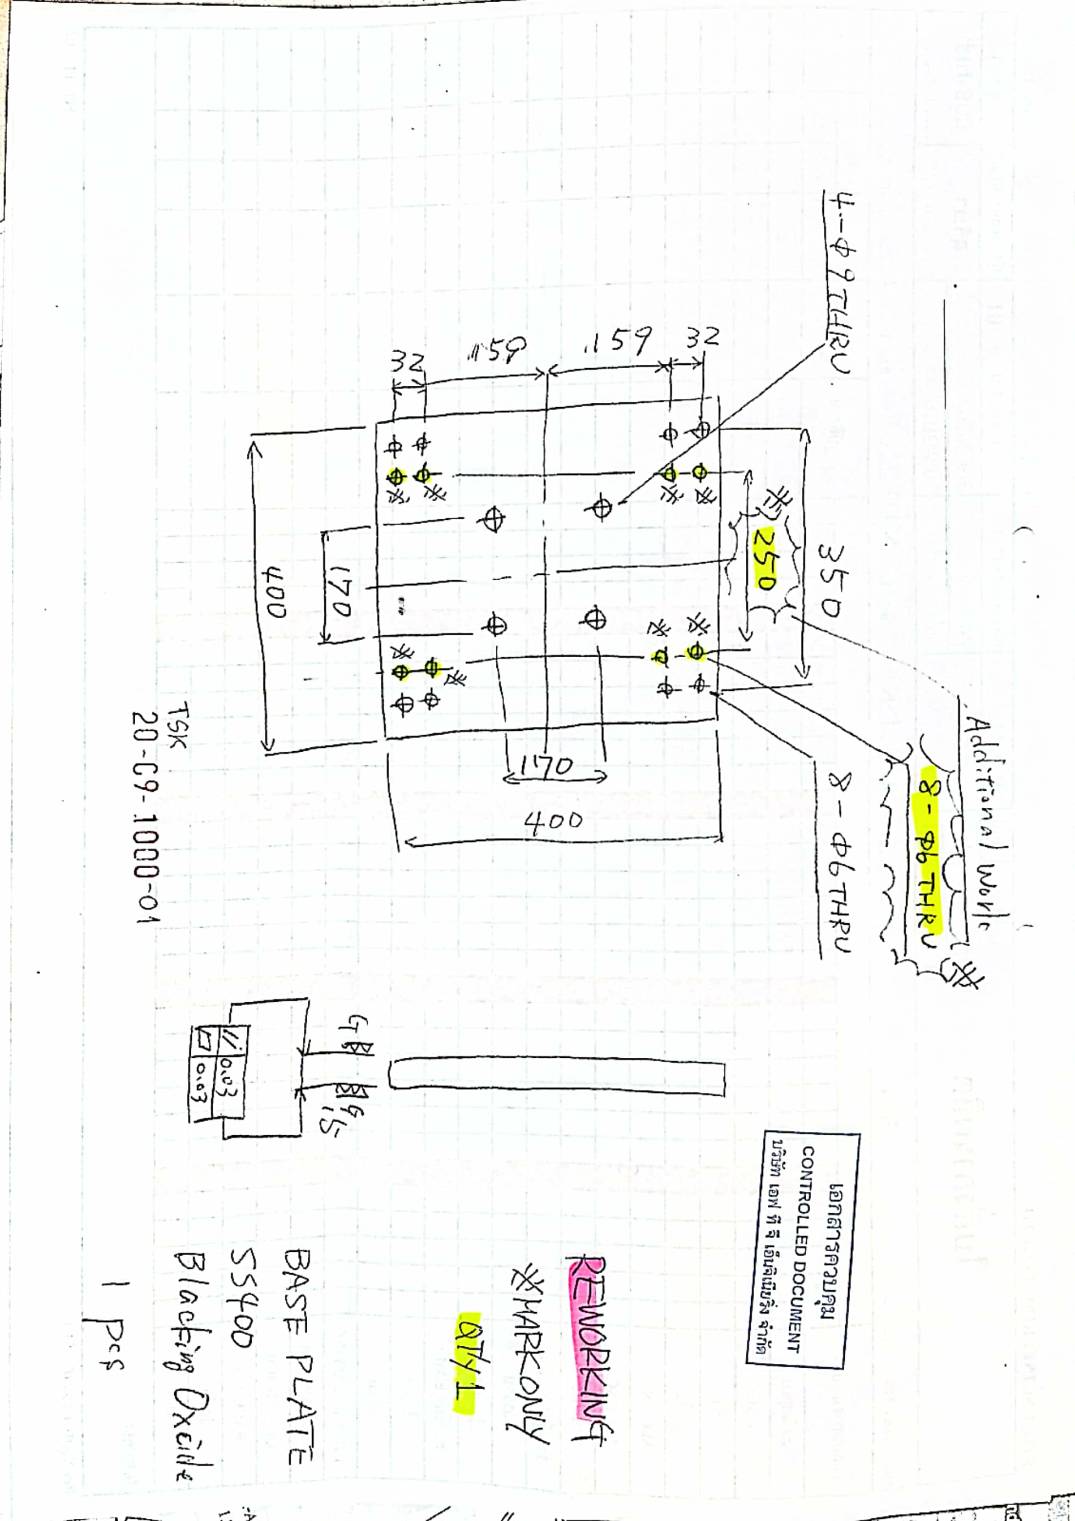 Additional Work
※
8-Φ6 THRU
4-Φ9 THRU
350
8-Φ6 THRU
※
250
เอกสารควบคุม
CONTROLLED DOCUMENT
บริษัท เอฟ ที จี เอ็นจิเนียริ่ง จำกัด
32
※
※
※
※
159
170
400
REWORKING
※MARK ONLY
QTY 1
159
※
※
32
※
※
170
G
G
15
400
BASE PLATE
SS400
// 0.03
▱ 0.03
Blacking Oxcide
TSK
20-C9-1000-01
1 pcs